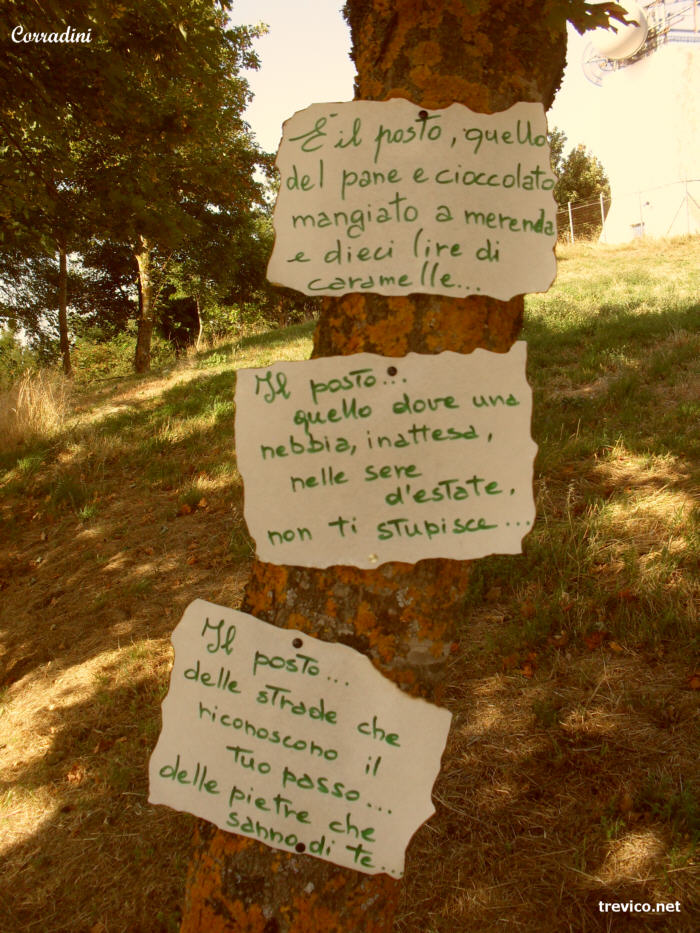 Corradini
E' il posto, quello
del pane e cioccolato
mangiato a merenda
e dieci lire di
caramelle...
Il posto...
quello dove una
nebbia, inattesa,
nelle sere
d'estate,
non ti stupisce...
Il posto...
delle strade che
riconoscono il
tuo passo...
delle pietre che
sanno di te...
trevico.net